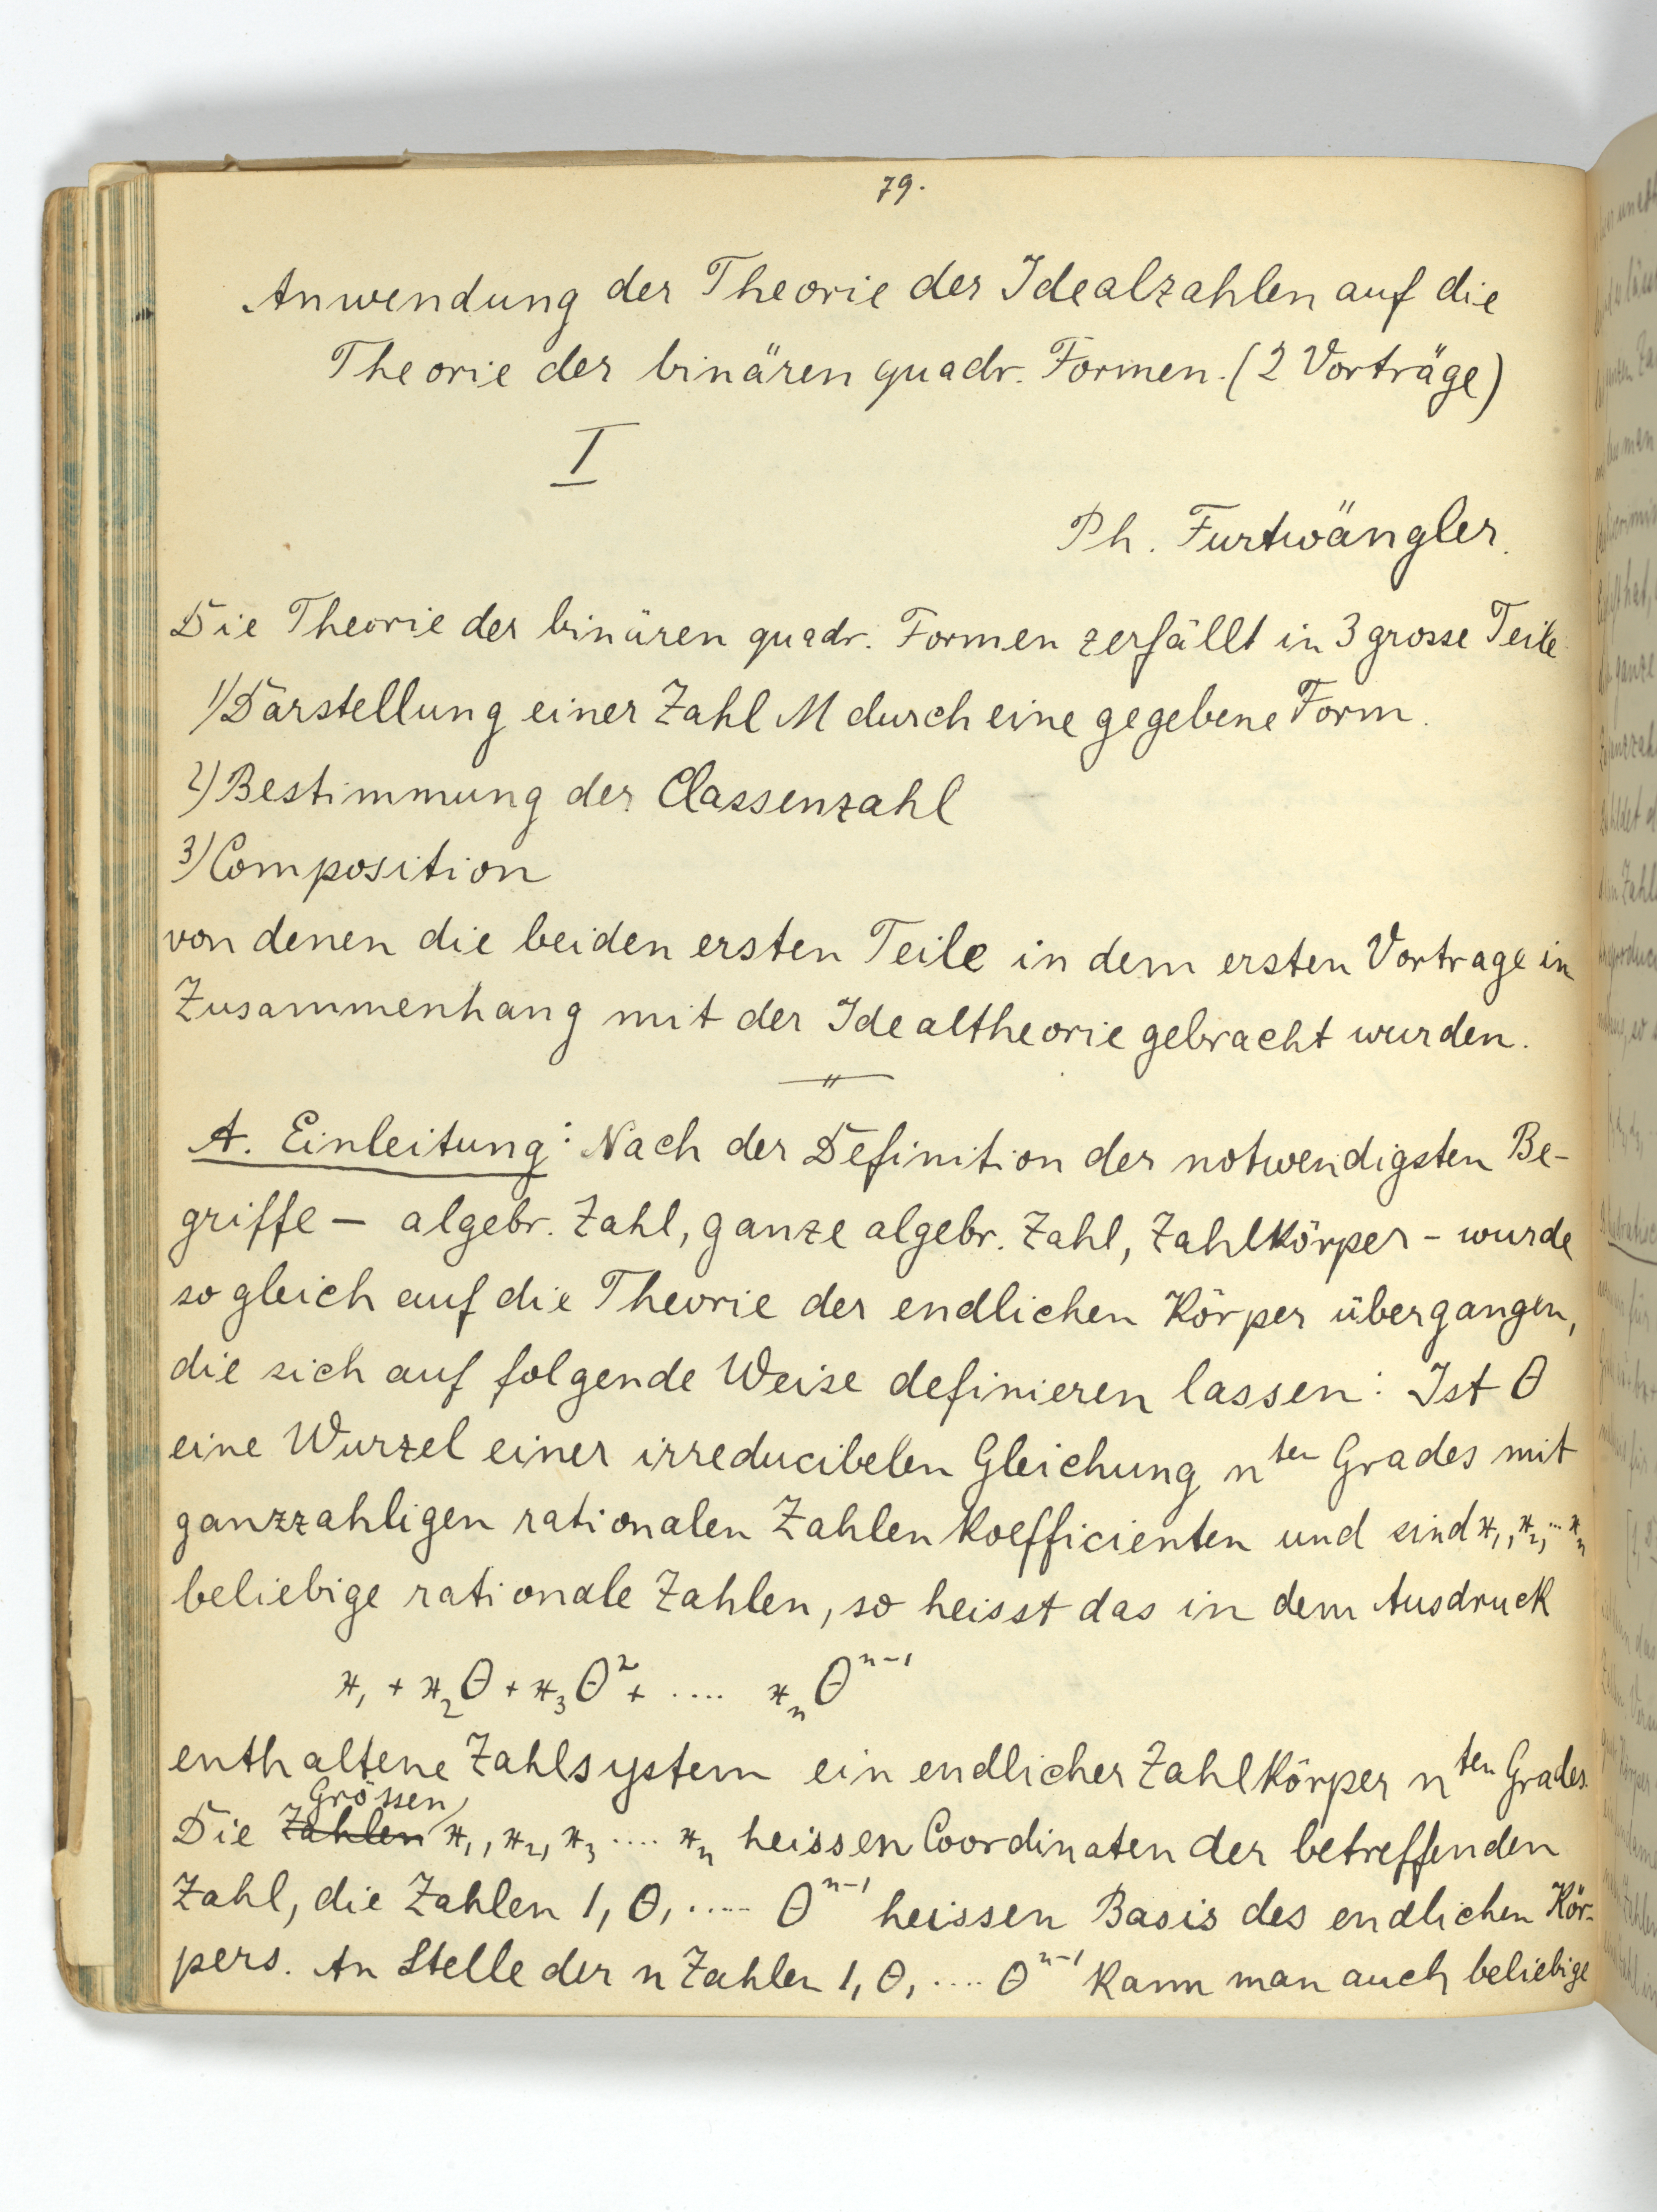 79.
Anwendung der Theorie der Idealzahlen auf die
Theorie der binären quadr. Formen. (2 Vorträge)
I
Ph. Furtwängler.
Die Theorie der binären quadr. Formen zerfällt in 3 grosse Teile
1) Darstellung einer Zahl M durch eine gegebene Form.
2) Bestimmung der Classenzahl
3) Composition
von denen die beiden ersten Teile in dem ersten Vortrage in
Zusammenhang mit der Idealtheorie gebracht wurden.
A. Einleitung: Nach der Definition der notwendigsten Be-
griffe – algebr. Zahl, ganze algebr. Zahl, Zahlkörper – wurde
sogleich auf die Theorie der endlichen Körper übergangen,
die sich auf folgende Weise definieren lassen: Ist θ
eine Wurzel einer irreducibelen Gleichung n^ten Grades mit
ganzzahligen rationalen Zahlenkoefficienten und sind x₁, x₂, ... xₙ
beliebige rationale Zahlen, so heisst das in dem Ausdruck
x₁ + x₂θ + x₃θ² + .... xₙθⁿ⁻¹
enthaltene Zahlsystem ein endlicher Zahlkörper n^ten Grades.
Grössen
Die Zahlen x₁, x₂, x₃ .... xₙ heissen Coordinaten der betreffenden
Zahl, die Zahlen 1, θ, ..... θⁿ⁻¹ heissen Basis des endlichen Kör-
pers. An Stelle der n Zahlen 1, θ, .... θⁿ⁻¹ kann man auch beliebige